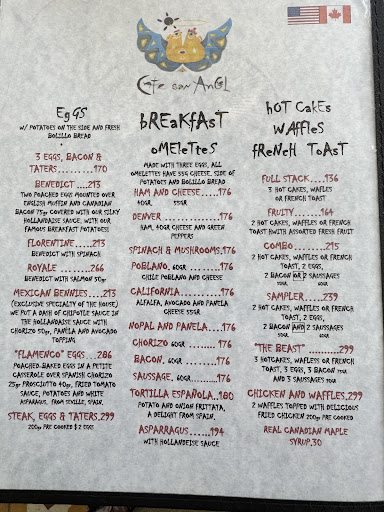 Cafe san AnGL
EgGS
W/ POTATOES ON THE SIDE AND FRESH
BOLILLO BREAD
3 EGGS, BACON &
TATERS..........170
BENEDICT ....213
TWO POACHED EGGS MOUNTED OVER
ENGLISH MUFFIN AND CANADIAN
BACON 75gr COVERED WITH OUR SILKY
HOLLANDAISE SAUCE, WITH OUR
FAMOUS BREAKFAST POTATOES!
FLORENTINE.....213
BENEDICT WITH SPINACH
ROYALE ........266
BENEDICT WITH SALMON 50gr
MEXICAN BENNIES....213
(EXCLUSIVE SPECIALTY OF THE HOUSE)
WE PUT A DASH OF CHIPOTLE SAUCE IN
THE HOLLANDAISE SAUCE WITH
CHORIZO 50gr, PANELA AND AVOCADO
TOPPING
"FLAMENCO" EGGS...286
POACHED-BAKED EGGS IN A PETITE
CASSEROLE OVER SPANISH CHORIZO
25gr PROSCIUTTO 40gr, FRIED TOMATO
SAUCE, POTATOES AND WHITE
ASPARAGUS. FROM SEVILLE, SPAIN.
STEAK, EGGS & TATERS.299
200gr PRE COOKED & 2 EGGS
bREakFAsT
oMEleTteS
MADE WITH THREE EGGS, ALL
OMELETTES HAVE 55G CHEESE, SIDE OF
POTATOES AND BOLILLO BREAD
HAM AND CHEESE.....176
40GR 55GR
DENVER ...............176
HAM, 40GR CHEESE AND GREEN
PEPPERS
SPINACH & MUSHROOMS.176
POBLANO, 60GR .........176
CHILE POBLANO AND CHEESE
CALIFORNIA............176
ALFALFA, AVOCADO AND PANELA
CHEESE 55GR
NOPAL AND PANELA....176
CHORIZO 60GR .........176
BACON. 60GR ..........176
SAUSSAGE, 60GR.........176
TORTILLA ESPAÑOLA..180
POTATO AND ONION FRITTATA,
A DELIGHT FROM SPAIN.
ASPARAGUS......194
WITH HOLLANDEISE SAUCE
hOT CakEs
WAffleS
fReNcH ToAsT
FULL STACK.....136
3 HOT CAKES, WAFLES
OR FRENCH TOAST
FRUITY.........164
2 HOT CAKES, WAFFLES OR FRENCH
TOAST WITH ASSORTED FRESH FRUIT
COMBO..........215
2 HOT CAKES, WAFFLES OR FRENCH
TOAST, 2 EGGS,
2 BACON OR 2 SAUSSAGES
SAMPLER.......239
2 HOT CAKES, WAFFLES OR FRENCH
TOAST, 2 EGGS,
2 BACON AND 2 SAUSSAGES
"THE BEAST" .........299
3 HOTCAKES, WAFLESS OR FRENCH
TOAST, 3 EGGS, 3 BACON 75GR
AND 3 SAUSSAGES 90GR
CHICKEN AND WAFFLES.299
2 WAFFLES TOPPED WITH DELICIOUS
FRIED CHICKEN 200gr PRE COOKED
REAL CANADIAN MAPLE
SYRUP.30